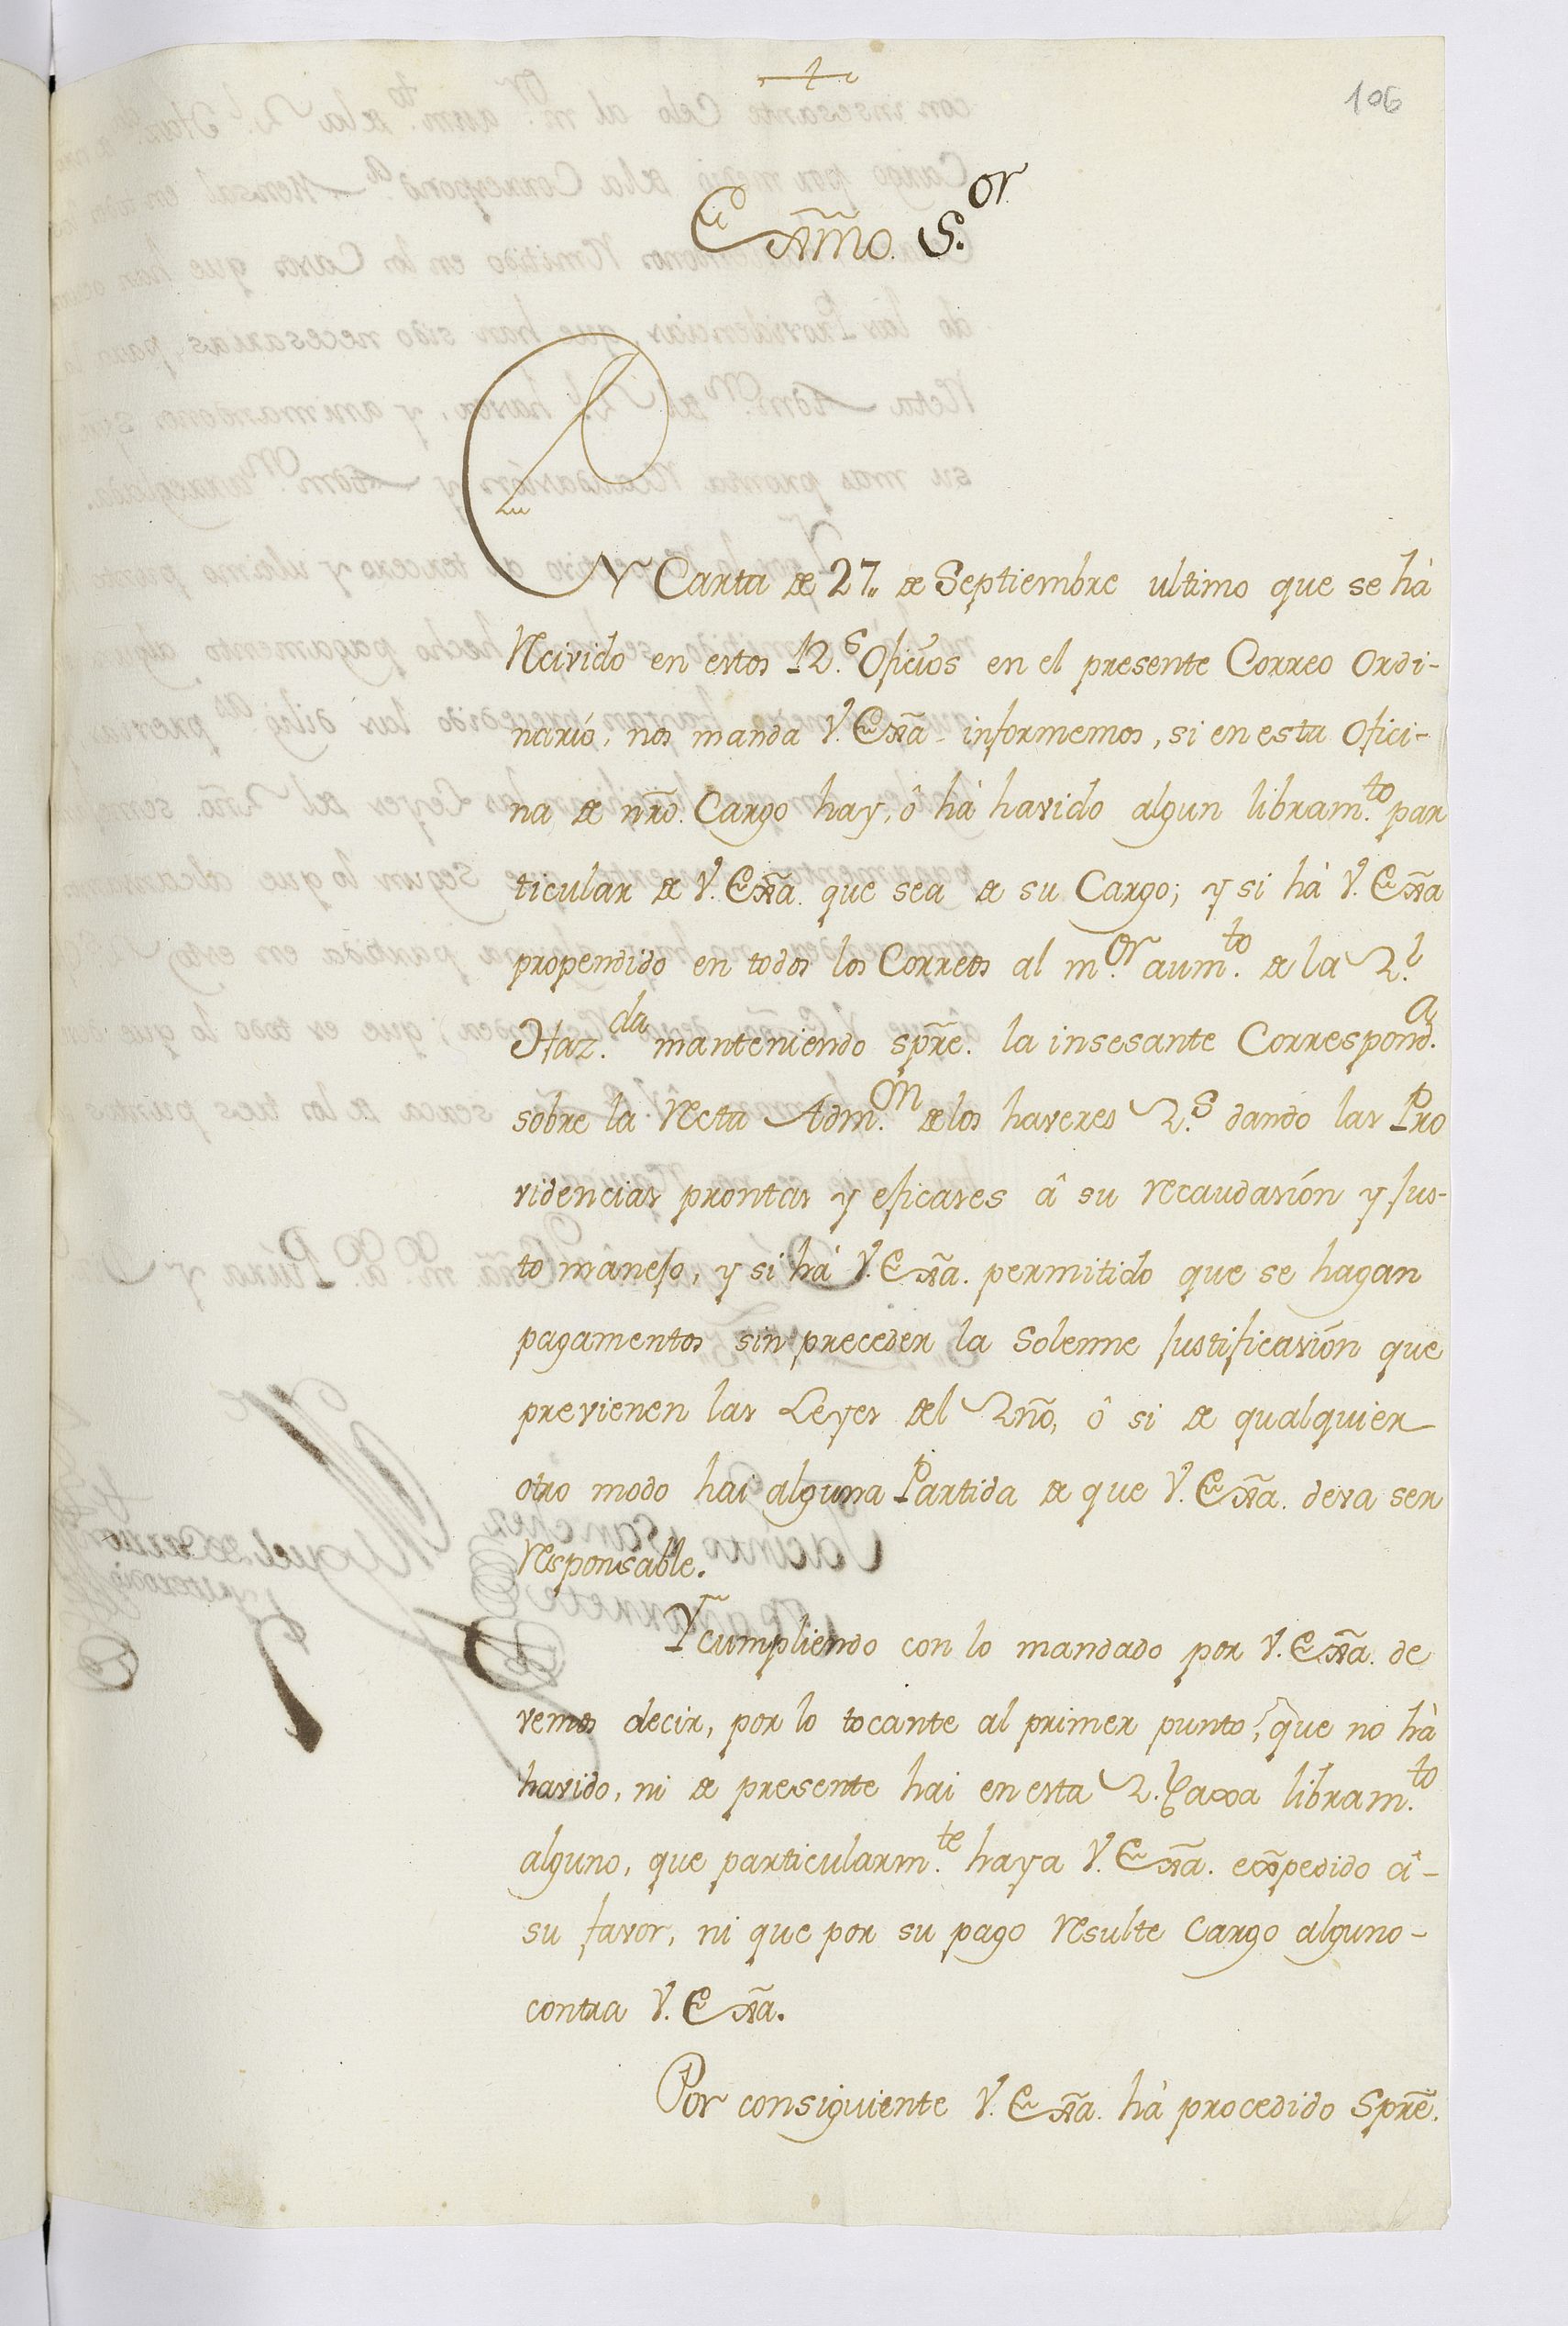 106
Exm̃o. S.or
EN Carta de 27,, de Septiembre ultimo que se hà
Recivido en estos R.s Oficios en el presente Correo Ordi-
nario, nos manda V. Exã. informemos, si en esta Ofici-
na de nrõ. Cargo hay, ô hà havido algun libram.to par
ticular de V. Exã. que sea de su Cargo; y si hà V. Exã
propendido en todos los Correos al m.or aum.to de la R.l
Haz.da manteniendo sprẽ. la insesante Correspond.a
sobre la Recta Adm.on de los haveres R.s dando las Pro
videncias prontas y eficases â su recaudasión y Jus-
to manejo, y si hà V. Exã. permitido que se hagan
pagamentos sin preceder la Solemne Justificasión que
previenen las Leyes del Rnõ, ô si de qualquier
otro modo hai alguna Partida de que V. Exã. deva ser
responsable.
Y cumpliendo con lo mandado por V. Exã. de
vemos decir, por lo tocante al primer punto, que no hà
havido, ni de presente hai en esta R. Caxa libram.to
alguno, que particularm.te haya V. Exã. expedido â-
su favor, ni que por su pago resulte Cargo alguno-
contra V. Exã.
Por consiguiente V. Exã. hà procedido Sprẽ.